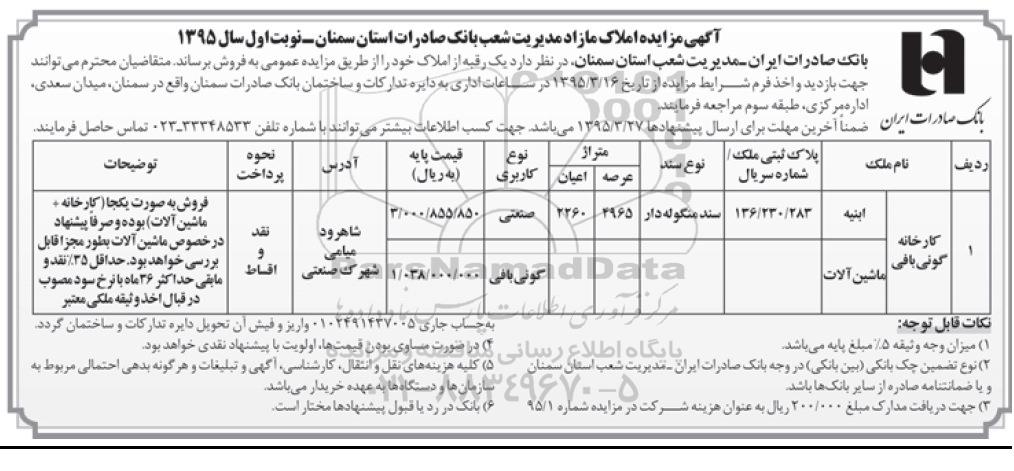 آگهی مزایده املاک مازاد مدیریت شعب بانک صادرات استان سمنان ـ نوبت اول سال ۱۳۹۵
بانک صادرات ایران ـ مدیریت شعب استان سمنان، در نظر دارد یک رقبه از املاک خود را از طریق مزایده عمومی به فروش برساند. متقاضیان محترم می‌توانند
جهت بازدید و اخذ فرم شرایط مزایده از تاریخ ۱۳۹۵/۳/۱۶ در ساعات اداری به دایره تدارکات و ساختمان بانک صادرات سمنان واقع در سمنان، میدان سعدی،
اداره مرکزی، طبقه سوم مراجعه فرمایند.
ضمناً آخرین مهلت برای ارسال پیشنهادها ۱۳۹۵/۳/۲۷ می‌باشد. جهت کسب اطلاعات بیشتر می‌توانند با شماره تلفن ۳۳۳۴۸۵۳۳-۰۲۳ تماس حاصل فرمایند.
بانک صادرات ایران
ردیف نام ملک پلاک ثبتی ملک/ شماره سریال نوع سند متراژ عرصه اعیان نوع کاربری قیمت پایه (به ریال) آدرس نحوه پرداخت توضیحات
۱ کارخانه گونی‌بافی ابنیه ۱۳۶/۲۳۰/۲۸۳ سند منگوله‌دار ۴۹۶۵ ۲۲۶۰ صنعتی ۳/۰۰۰/۸۵۵/۸۵۰
ماشین آلات گونی‌بافی ۱/۰۳۸/۰۰۰/۰۰۰
شاهرود
میامی
شهرک صنعتی
نقد
و
اقساط
فروش به صورت یکجا (کارخانه +
ماشین آلات) بوده و صرفاً پیشنهاد
در خصوص ماشین آلات بطور مجزا قابل
بررسی خواهد بود. حداقل ۳۵٪ نقد و
مابقی حداکثر ۳۶ ماه با نرخ سود مصوب
در قبال اخذ وثیقه ملکی معتبر
نکات قابل توجه:
۱) میزان وجه وثیقه ۵٪ مبلغ پایه می‌باشد.
۲) نوع تضمین چک بانکی (بین بانکی) در وجه بانک صادرات ایران ـ مدیریت شعب استان سمنان
و یا ضمانتنامه صادره از سایر بانک‌ها باشد.
۳) جهت دریافت مدارک مبلغ ۲۰۰/۰۰۰ ریال به عنوان هزینه شرکت در مزایده شماره ۹۵/۱
به حساب جاری ۰۱۰۲۴۹۱۴۳۷۰۰۵ واریز و فیش آن تحویل دایره تدارکات و ساختمان گردد.
۴) در صورت مساوی بودن قیمت‌ها، اولویت با پیشنهاد نقدی خواهد بود.
۵) کلیه هزینه‌های نقل و انتقال، کارشناسی، آگهی و تبلیغات و هرگونه بدهی احتمالی مربوط به
سازمان‌ها و دستگاه‌ها به عهده خریدار می‌باشد.
۶) بانک در رد یا قبول پیشنهادها مختار است.
ParsNamadData
مرکز فرآوری اطلاعات پارس نماد داده‌ها
پایگاه اطلاع رسانی
۰۲۱-۸۸۳۴۹۶۷۰-۵